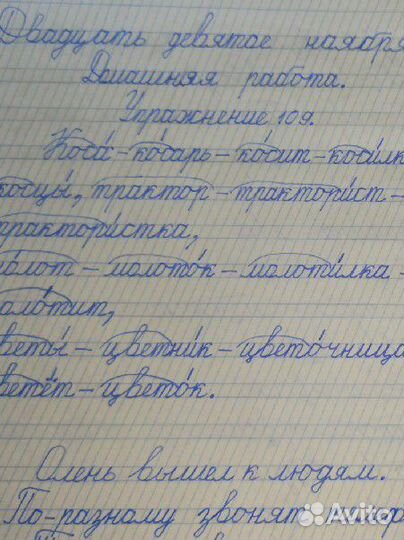 Двадцать девятое ноября
Домашняя работа.
Упражнение 109.
Коса́ - ко́сарь - ко́сит - коси́лк
косцы́, трактор - трактори́ст -
трактори́стка,
мо́лот - молото́к - молоти́лка -
оло́тит,
веты́ - цветни́к - цвето́чница
ветёт - цвето́к.
Олень вышел к людям.
По-разному звонят
Avito